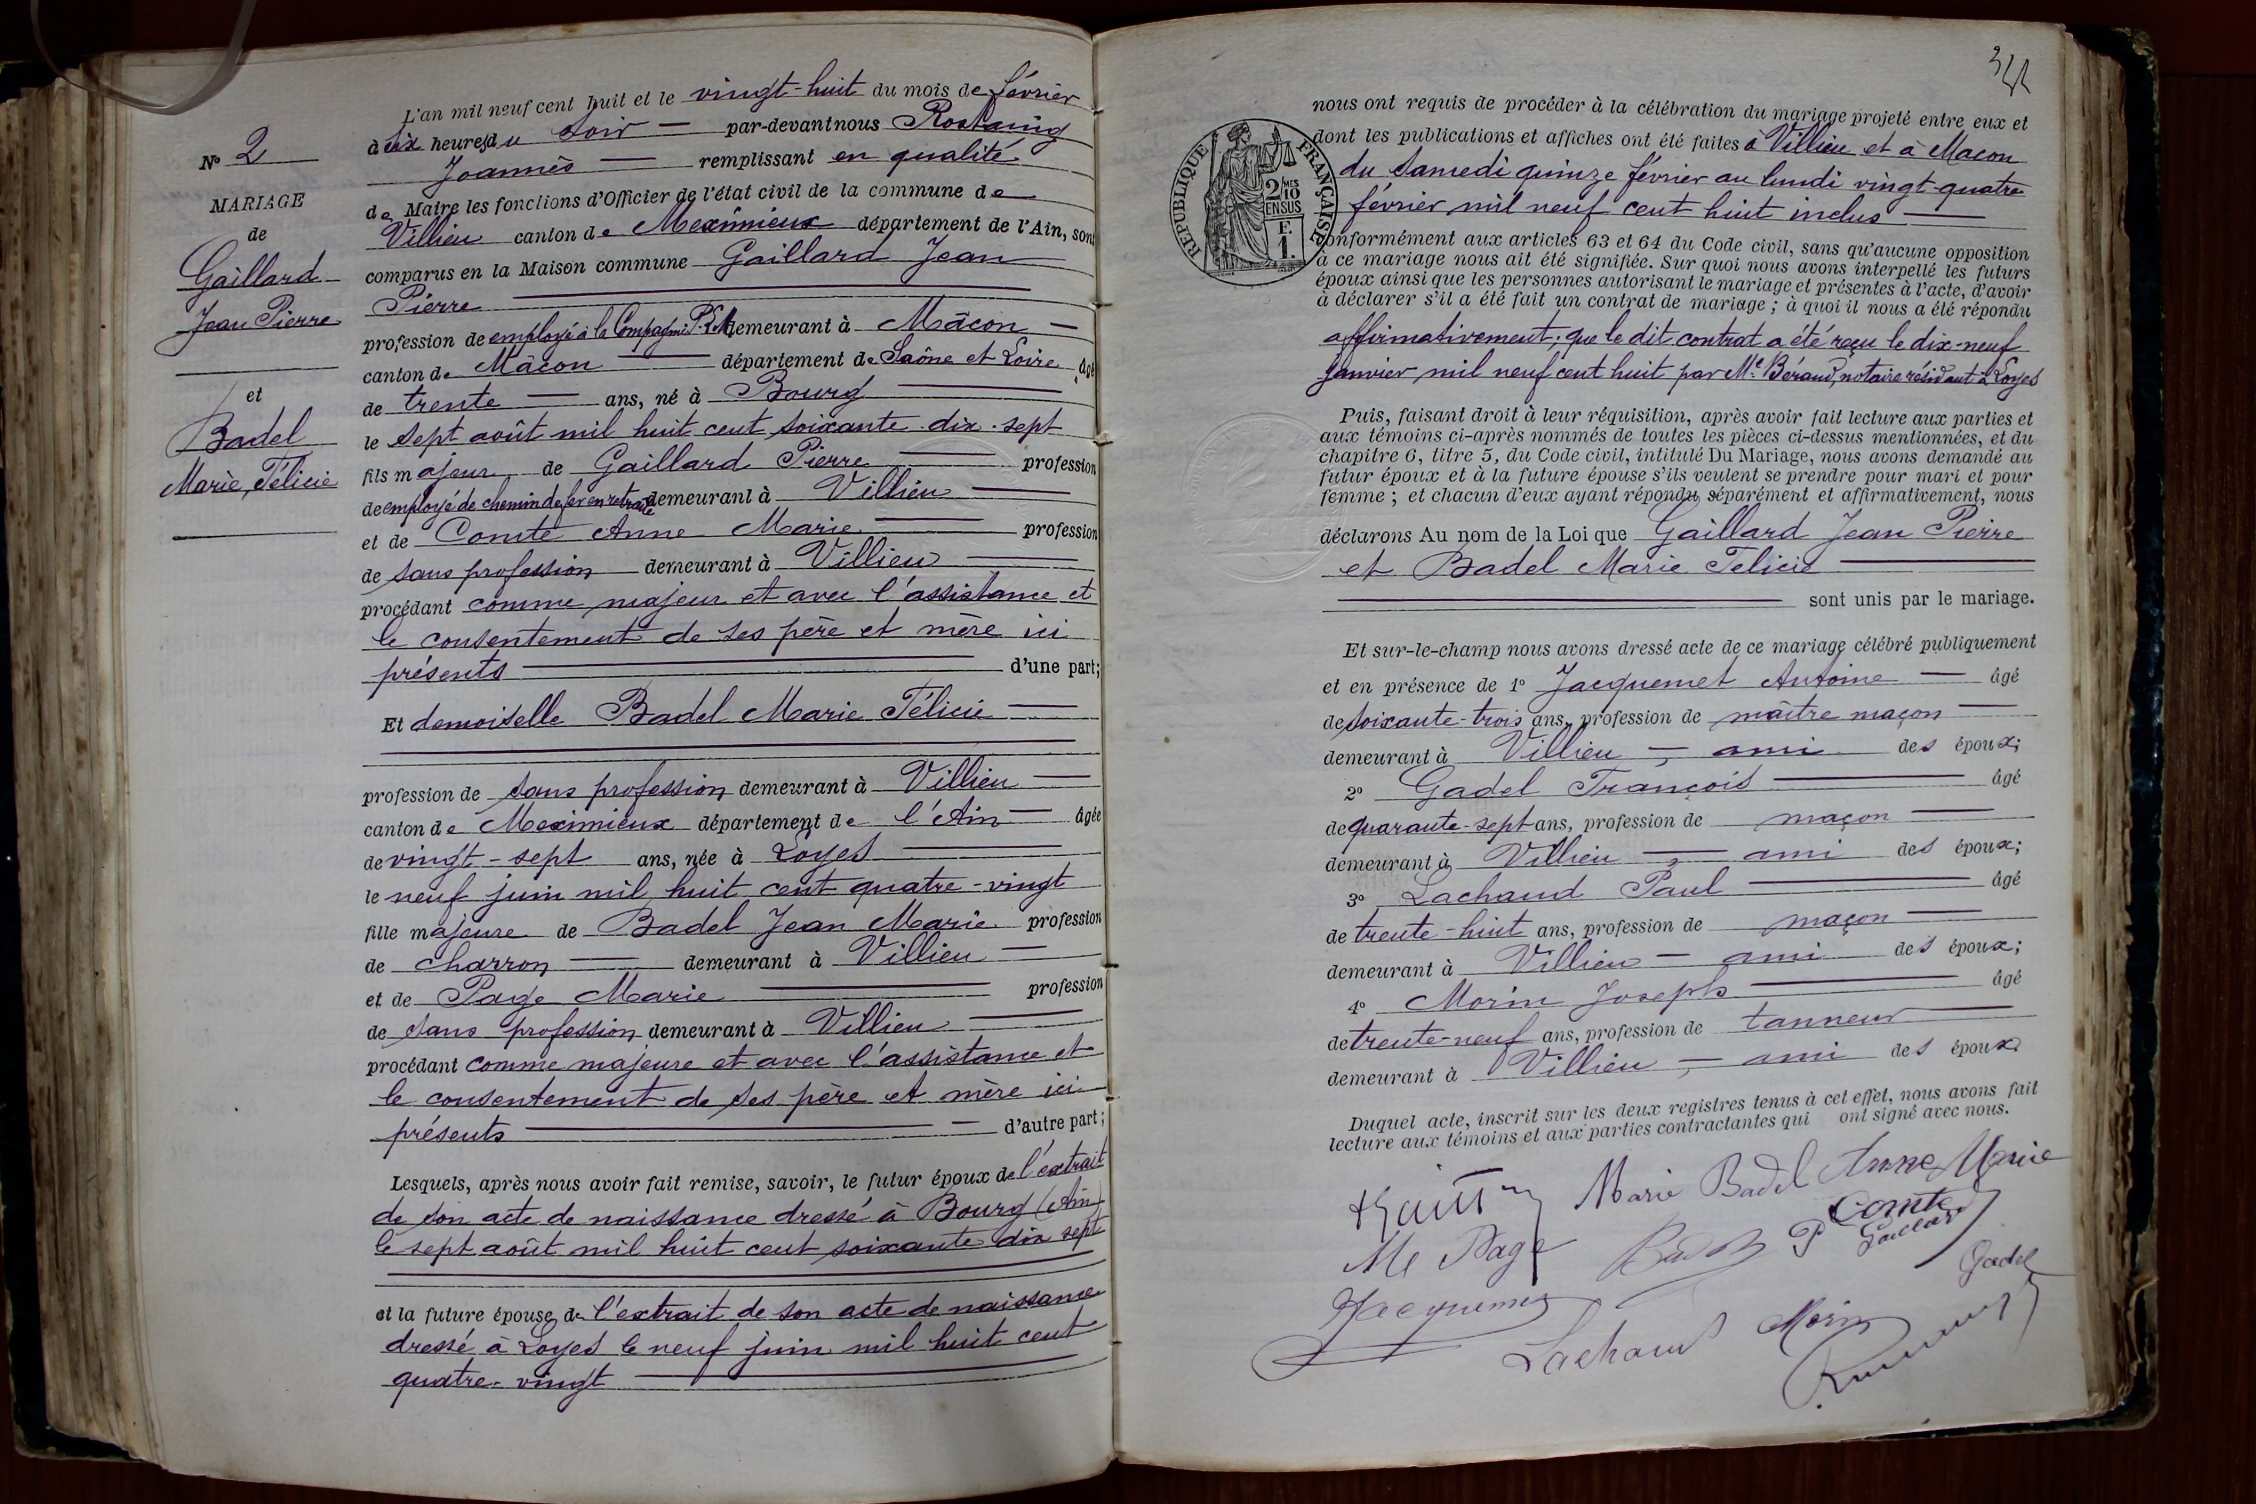 N° 2
MARIAGE
de
Gaillard
Jean Pierre
et
Badel
Marie, Félicie
L'an mil neuf cent huit et le vingt-huit du mois de février
à six heures du soir — par-devant nous Rostaing
Joannès — remplissant en qualité
de Maire les fonctions d'Officier de l'état civil de la commune de
Villieu canton de Meximieux département de l'Ain, sont
comparus en la Maison commune Gaillard Jean
Pierre
profession de employé à la Compagnie P.L.M. demeurant à Mâcon —
canton de Mâcon — département de Saône et Loire âgé
de trente — ans, né à Bourg
le sept août mil huit cent soixante-dix-sept
fils majeur de Gaillard Pierre — profession
de employé de chemin de fer en retraite demeurant à Villieu —
et de Comte Anne Marie — profession
de sans profession demeurant à Villieu —
procédant comme majeur et avec l'assistance et
le consentement de ses père et mère ici
présents — d'une part;
Et demoiselle Badel Marie Félicie —
profession de sans profession demeurant à Villieu —
canton de Meximieux département de l'Ain — âgée
de vingt-sept ans, née à Loyes —
le neuf juin mil huit cent quatre-vingt
fille majeure de Badel Jean Marie profession
de charron — demeurant à Villieu —
et de Page Marie — profession
de sans profession demeurant à Villieu —
procédant comme majeure et avec l'assistance et
le consentement de ses père et mère ici
présents — d'autre part;
Lesquels, après nous avoir fait remise, savoir, le futur époux de l'extrait
de son acte de naissance dressé à Bourg (Ain)
le sept août mil huit cent soixante dix sept
et la future épouse de l'extrait de son acte de naissance
dressé à Loyes le neuf juin mil huit cent
quatre-vingt —
RÉPUBLIQUE FRANÇAISE
2 MES 10 EN SUS
F. 1.
nous ont requis de procéder à la célébration du mariage projeté entre eux et
dont les publications et affiches ont été faites à Villieu et à Macon
du samedi quinze février au lundi vingt-quatre
février mil neuf cent huit inclus —
conformément aux articles 63 et 64 du Code civil, sans qu'aucune opposition
à ce mariage nous ait été signifiée. Sur quoi nous avons interpellé les futurs
époux ainsi que les personnes autorisant le mariage et présentes à l'acte, d'avoir
à déclarer s'il a été fait un contrat de mariage; à quoi il nous a été répondu
affirmativement; que le dit contrat a été reçu le dix-neuf
janvier mil neuf cent huit par Me Béraud, notaire résidant à Loyes
Puis, faisant droit à leur réquisition, après avoir fait lecture aux parties et
aux témoins ci-après nommés de toutes les pièces ci-dessus mentionnées, et du
chapitre 6, titre 5, du Code civil, intitulé Du Mariage, nous avons demandé au
futur époux et à la future épouse s'ils veulent se prendre pour mari et pour
femme; et chacun d'eux ayant répondu séparément et affirmativement, nous
déclarons Au nom de la Loi que Gaillard Jean Pierre
et Badel Marie Félicie —
sont unis par le mariage.
Et sur-le-champ nous avons dressé acte de ce mariage célébré publiquement
et en présence de 1° Jacquemet Antoine — âgé
de soixante-trois ans, profession de maître maçon —
demeurant à Villieu — ami des époux;
2° Gadel François — âgé
de quarante-sept ans, profession de maçon —
demeurant à Villieu — ami des époux;
3° Lachaud Paul — âgé
de trente-huit ans, profession de maçon —
demeurant à Villieu — ami des époux;
4° Morin Joseph — âgé
de trente-neuf ans, profession de tanneur —
demeurant à Villieu — ami des époux
Duquel acte, inscrit sur les deux registres tenus à cet effet, nous avons fait
lecture aux témoins et aux parties contractantes qui ont signé avec nous.
Marie Badel Anne Marie
Comte
M Page Badel P Gaillard
Jacquemet Gadel
Lachaud Morin